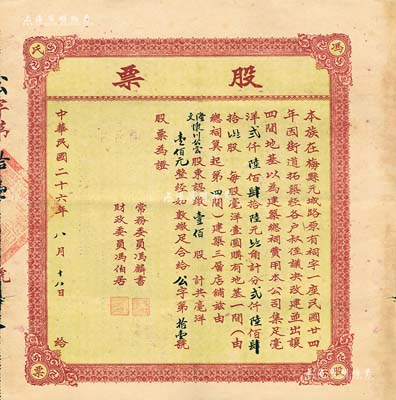 馮氏
股票
本族在梅縣元城路原有祠宇一座民國廿四
年因街道拓築經各户叔侄議決改建並出讓
四間地基以為建築總祠費用本公司集足毫
洋貳仟陸佰肆拾陸元
角計分貳仟陸佰肆
拾
股每股毫洋壹圓購有地基一間(由
總祠巽起第四間)建築三層店鋪茲由
股東認繳壹佰股計共毫洋
壹佰元整經如數繳足合給公字第拾
號
股票為證
常務委員馮麟書
財政委員馮伯君
中華民國二十六年八月十八日給
股票